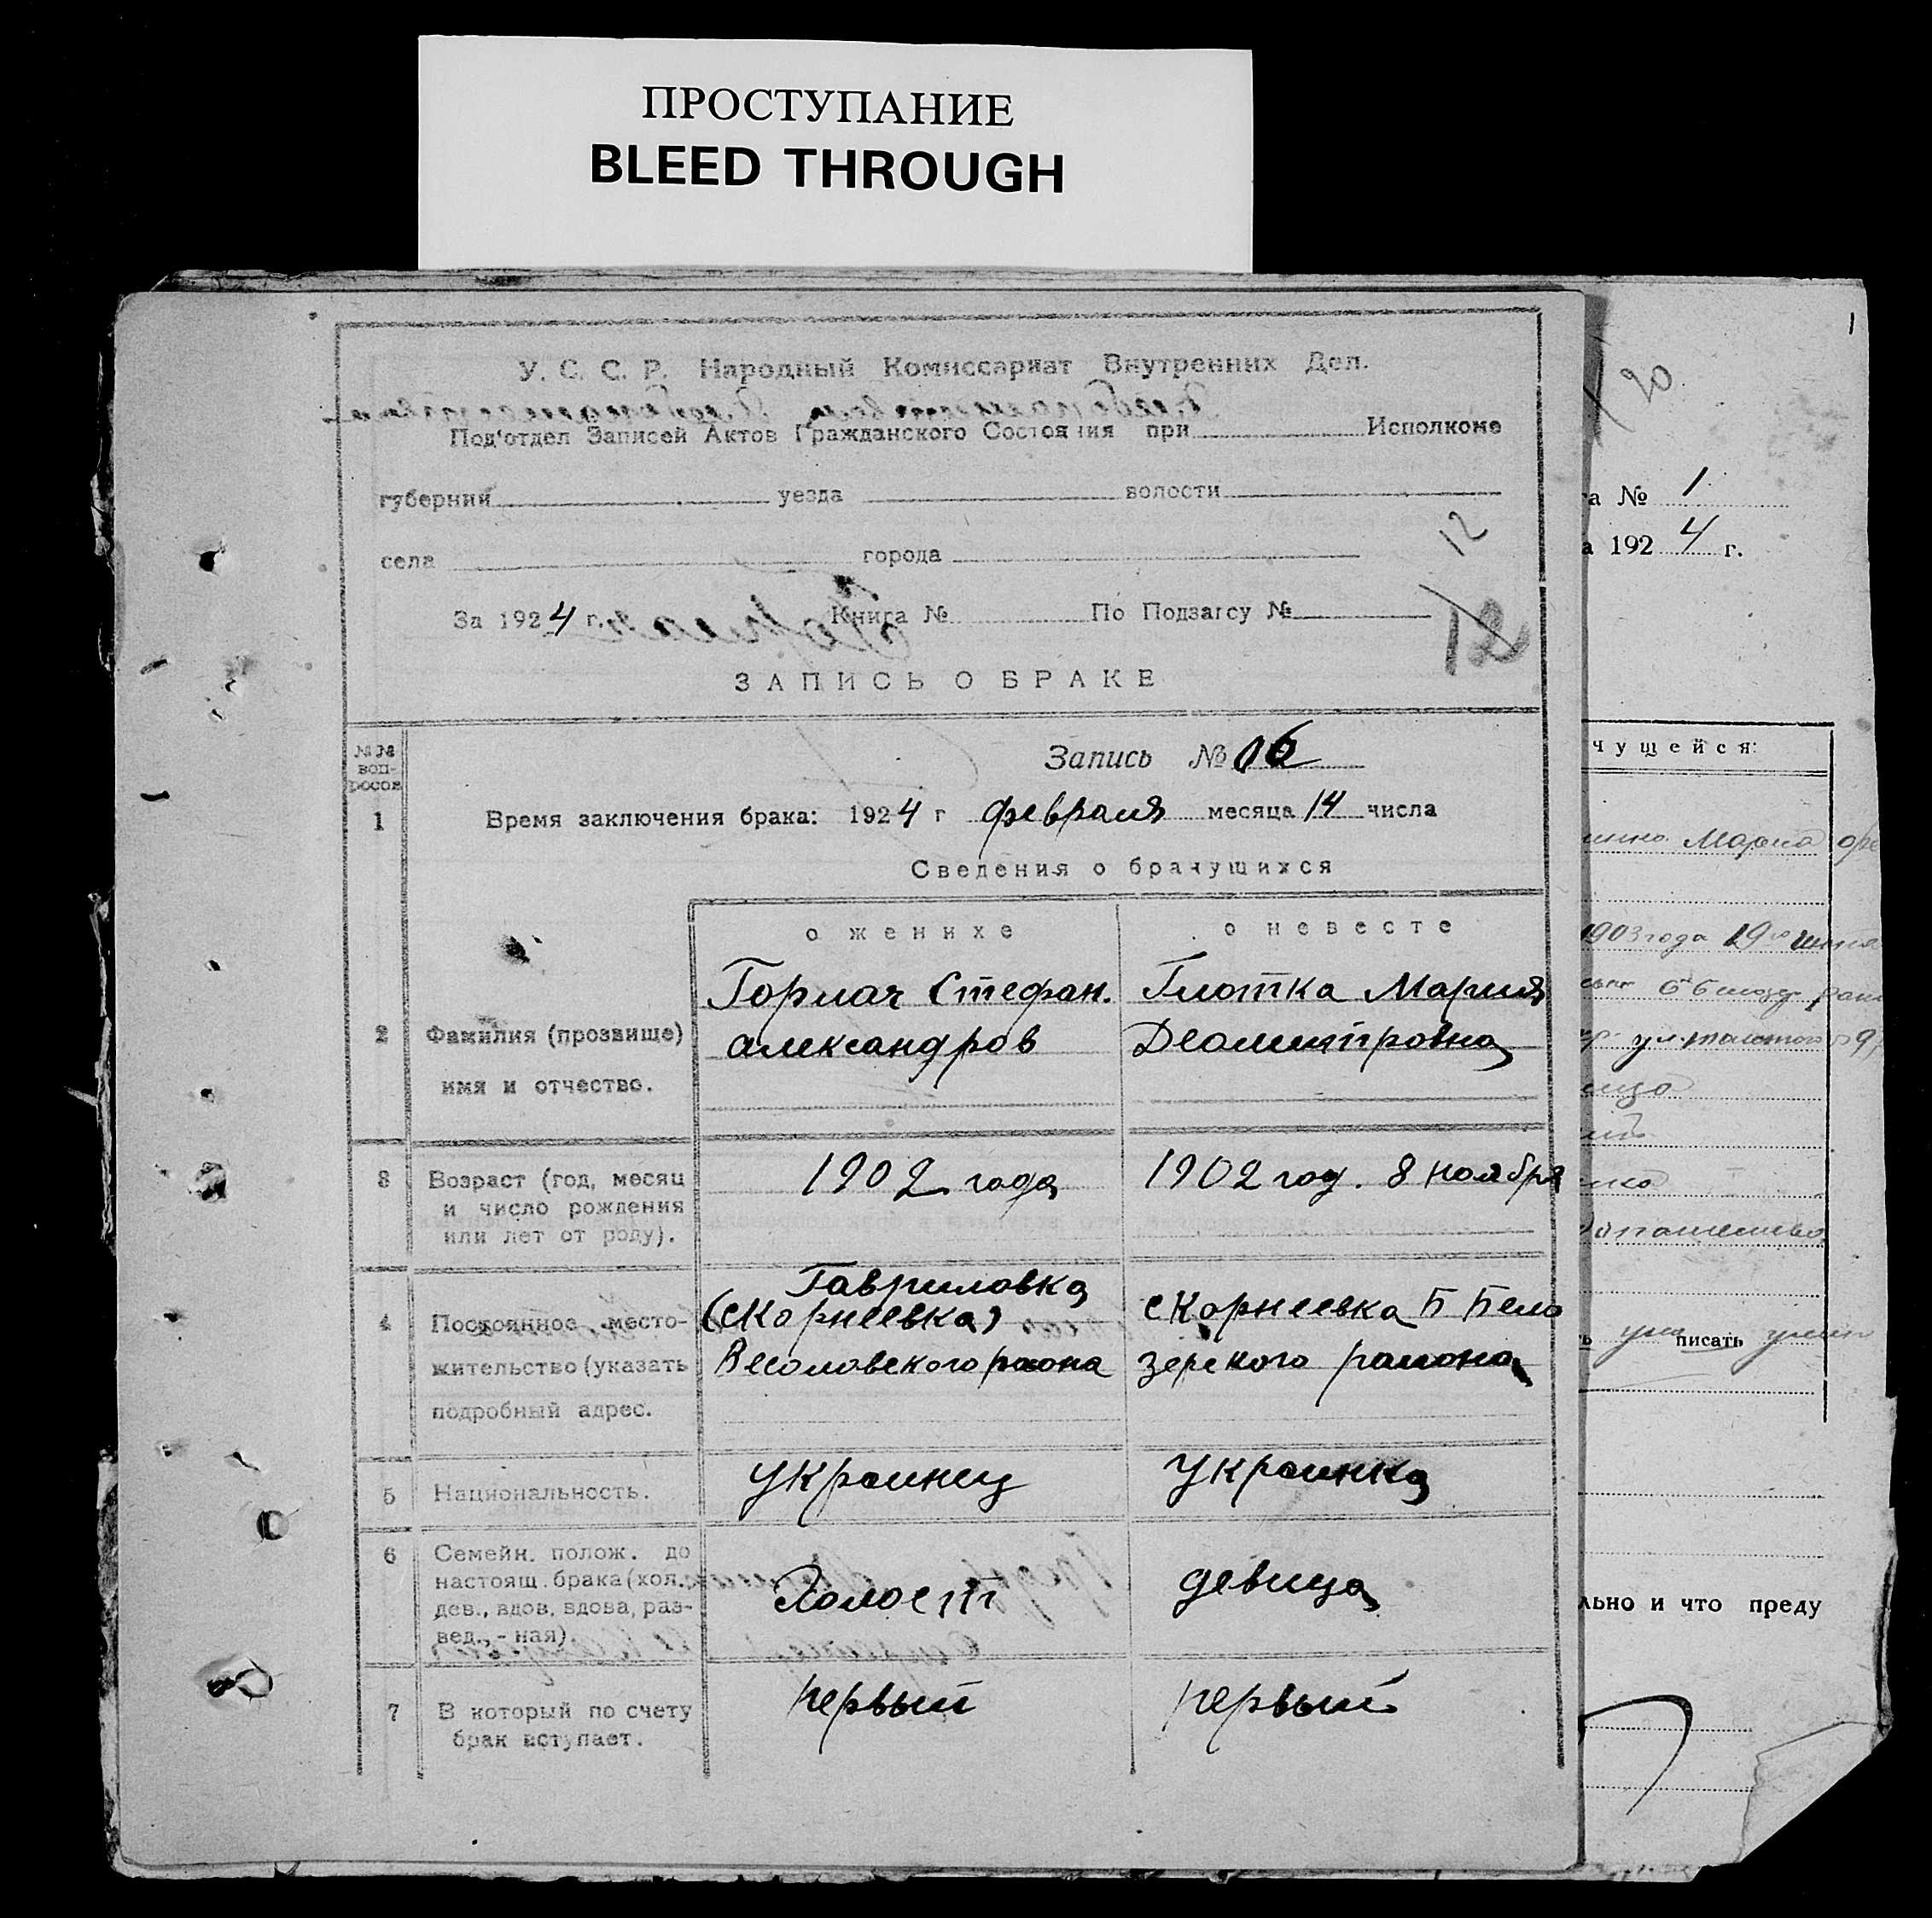 ПРОСТУПАНИЕ
BLEED THROUGH
1
У. С. С. Р. Народный Комиссариат Внутренних Дел.
Под'отдел Записей Актов Гражданского Состояния при Исполкоме
губернии уезда волости
12
села города
За 1924 г. Книга № По Подзагсу №
12
ЗАПИСЬ О БРАКЕ
№№ воп-
росов
Запись № 06
1 Время заключения брака: 1924 г февраля месяца 14 числа
Сведения о брачущихся
о женихе о невесте
Горлач Стефан. Глотка Мария
2 Фамилия (прозвище) александров Деомитровна
имя и отчество.
3 Возраст (год, месяц 1902 года 1902 год. 8 ноября
и число рождения
или лет от роду).
Гавриловка
4 Постоянное место- (с Корнеевка) с Корнеевка Б Бело
жительство (указать Весоловского раона зерского раиона
подробный адрес.
5 Национальность. украинец украинка
6 Семейн. полож. до
настоящ. брака (хол., Холост девица
дев., вдов, вдова, раз-
вед., - ная).
7 В который по счету первый первый
брак вступает.
а № 1
а 1924 г.
чущейся:
Мария
1903 года 19го
писать
льно и что преду